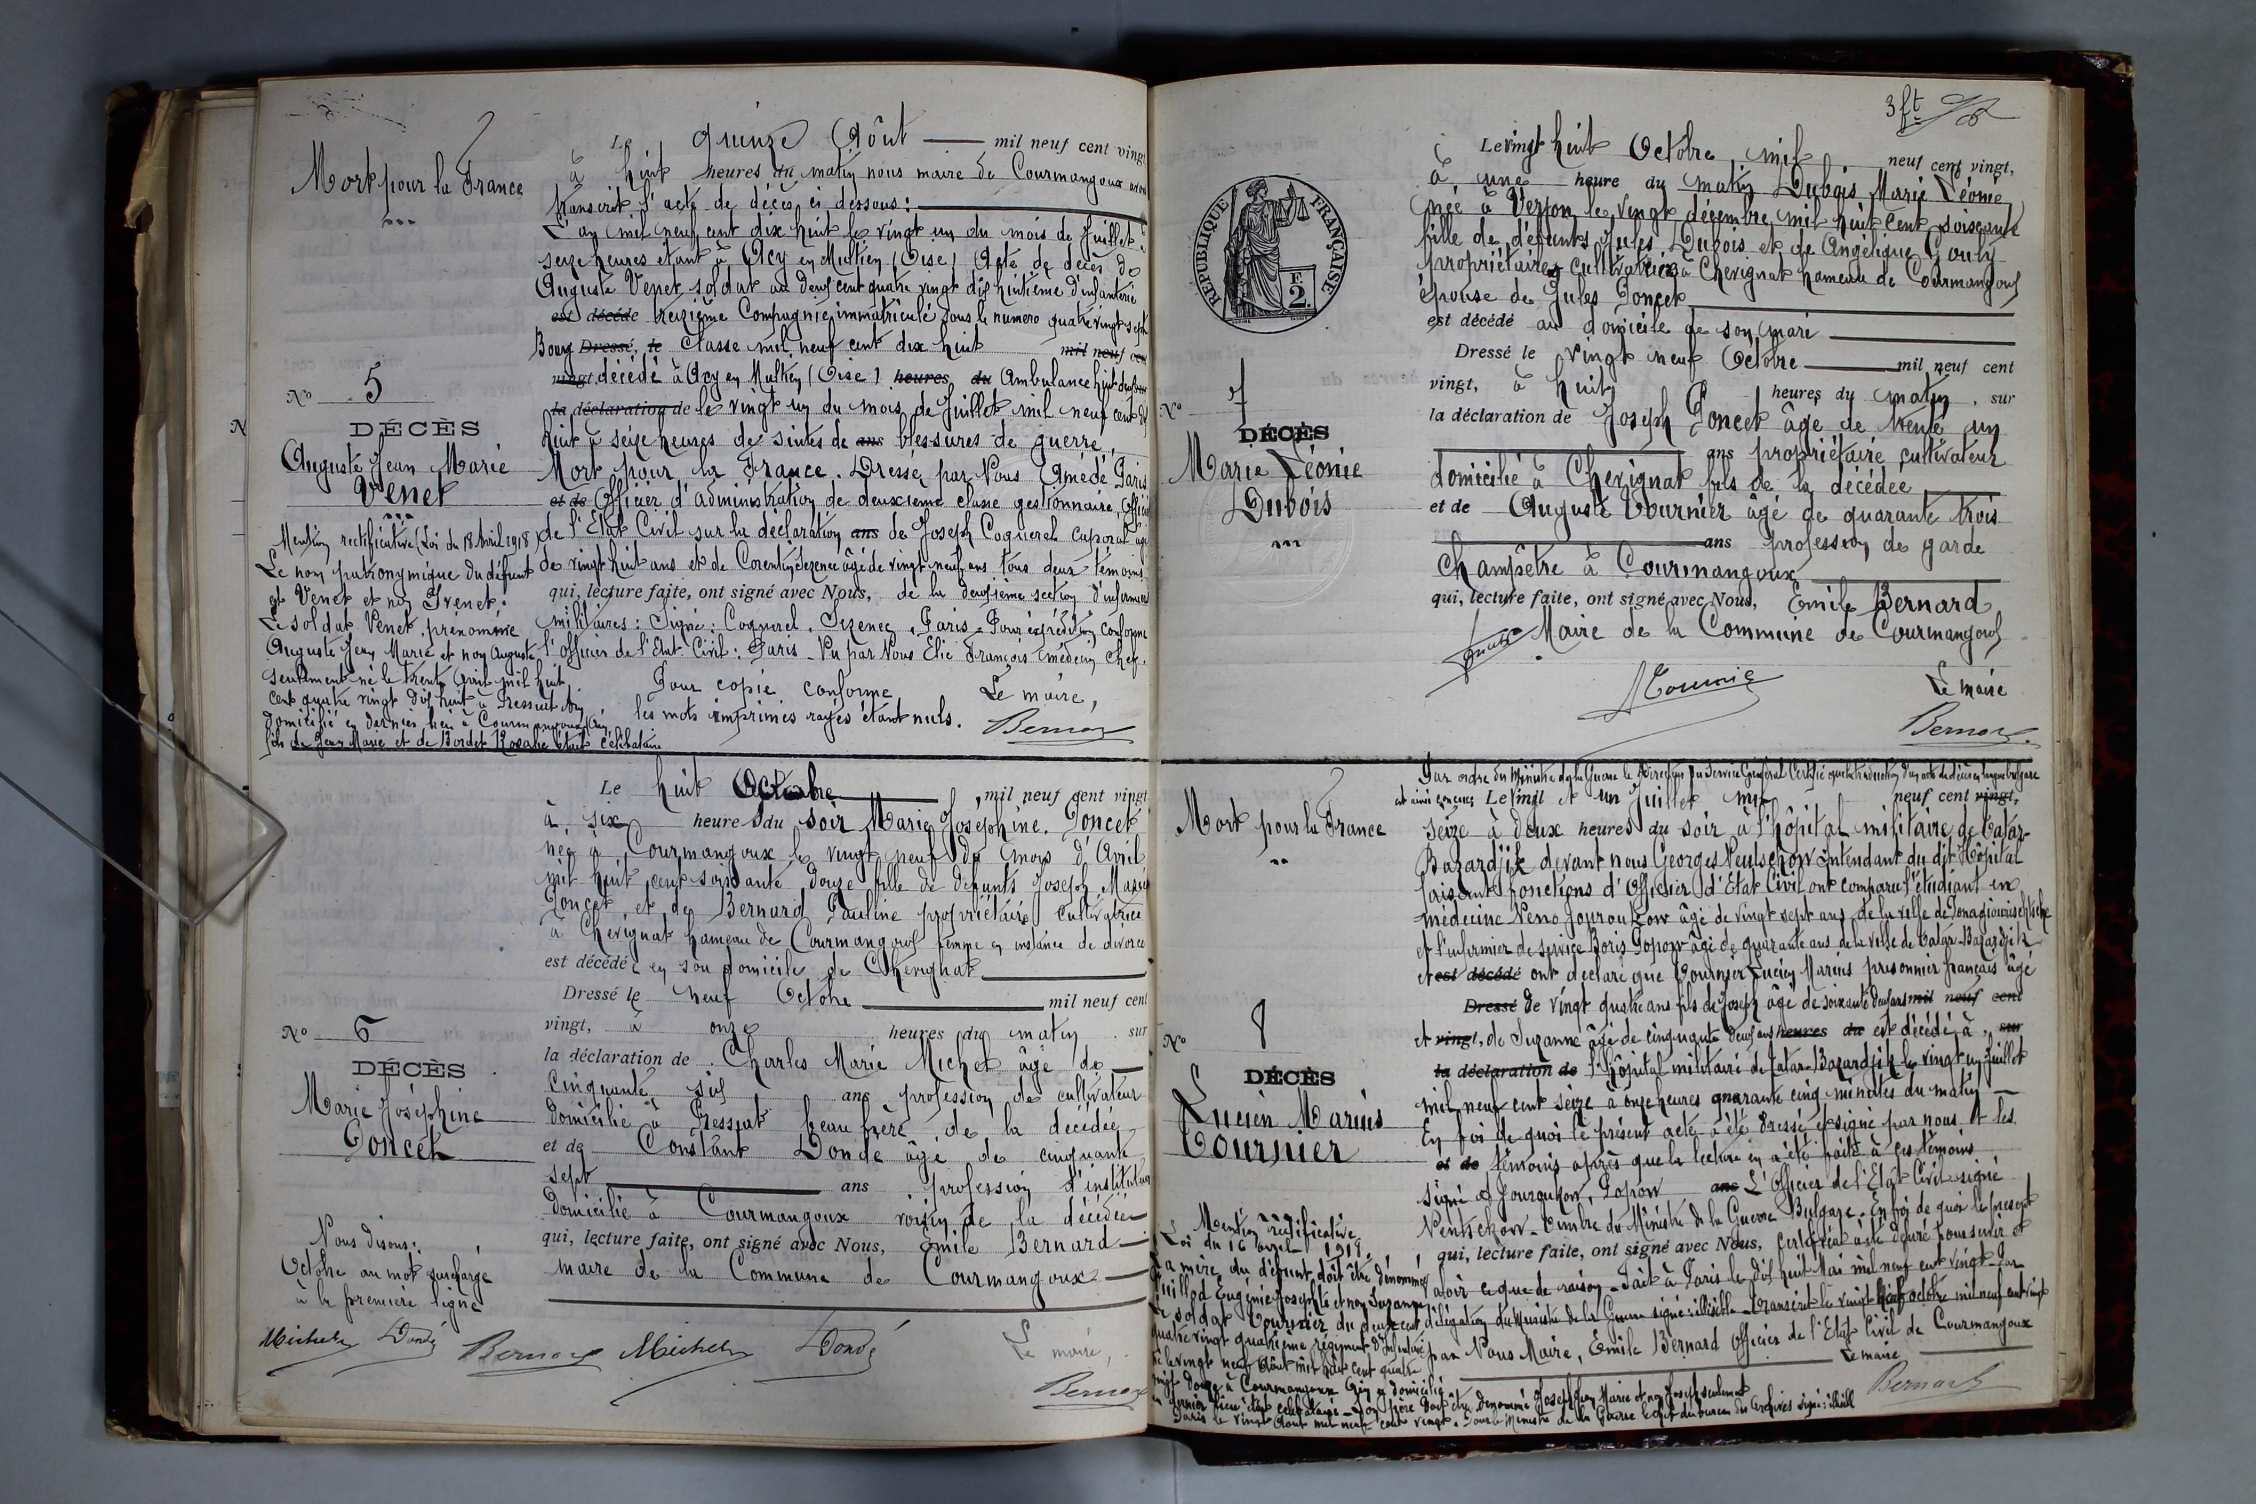 Mort pour la France
Le quinze Août mil neuf cent vingt
à huit heures du matin nous maire de Courmangoux avons
transcrit l'acte de décès ci dessous :
L'an mil neuf cent dix huit le vingt un du mois de Juillet à
seize heures étant à Acy en Multien (Oise) Acte de décès de
Auguste Venet soldat au deux cent quatre vingt dix huitième d'infanterie
est décédé treizième Compagnie, immatriculé sous le numero quatre vingt sept
Bourg Dressé, le Classe mil neuf cent dix huit mil neuf cent
vingt décédé à Acy en Multien (Oise) heures du Ambulance huit
la déclaration de le vingt un du mois de Juillet mil neuf cent dix
huit à seize heures de suites de ans blessures de guerre.
Mort pour la France. Dressé par Nous Amédé Paris
et de Officier d'administration de deuxième classe gestionnaire, Officier
de l'Etat Civil sur la déclaration ans de Joseph Coquerel caporal âgé
de vingt huit ans et de Corentin Sezenec âgé de vingt neuf ans tous deux témoins
qui, lecture faite, ont signé avec Nous, de la deuxième section d'infirmiers
militaires : Signé : Coquerel. Sezenec. Paris. Pour expédition conforme
l'officier de l'Etat Civil : Paris. Vu par Nous Elie François médecin chef.
Pour copie conforme Le maire,
les mots imprimés rayés étant nuls. Bernard
N° 5
DÉCÈS
Auguste Jean Marie
Venet
Mention rectificative (Loi du 18 Avril 1918)
Le nom patronymique du défunt
est Venet et non Trenet.
Le soldat Venet, prénommé
Auguste Jean Marie et non Auguste
seulement né le trente Avril mil huit
cent quatre vingt dix huit à Pressiat Ain
domicilié en dernier lieu à Courmangoux (Ain)
fils de Jean Marie et de Bordet Rosalie était célibataire
Le huit Octobre mil neuf cent vingt
à six heures du soir Marie Joséphine Poncet
née à Courmangoux le vingt neuf du mois d'Avril
mil huit cent soixante douze fille de defunts Joseph Marie
Poncet et de Bernard Pauline propriétaire cultivatrice
à Chevignat hameau de Courmangoux femme en instance de divorce
est décédée en son domicile de Chevignat
Dressé le neuf Octobre mil neuf cent
vingt, à onze heures du matin sur
la déclaration de Charles Marie Michel âgé de
cinquante six ans profession de cultivateur
domicilié à Pressiat beau frère de la décédée
et de Constant Dondé âgé de cinquante
sept ans profession d'instituteur
domicilié à Courmangoux voisin de la décédée
qui, lecture faite, ont signé avec Nous, Emile Bernard
maire de la Commune de Courmangoux
N° 6
DÉCÈS
Marie Joséphine
Poncet
Nous disons :
Octobre au mot surchargé
à la première ligne
Michel Dondé Bernard Michel Dondé
Le maire,
Bernard
3 ft
RÉPUBLIQUE FRANÇAISE
F.
2.
Le vingt huit Octobre mil neuf cent vingt,
à une heure du matin Dubois Marie Léonie
née à Verjon le vingt décembre mil huit cent soixante
fille de défunts Jules Dubois et de Angelique Gouly
propriétaires cultivatrice à Chevignat hameau de Courmangoux
épouse de Jules Poncet
est décédé au domicile de son mari
Dressé le vingt neuf Octobre mil neuf cent
vingt, à huit heures du matin, sur
la déclaration de Joseph Poncet âgé de trente un
ans propriétaire cultivateur
domicilié à Chevignat fils de la décédée
et de Auguste Tournier âgé de quarante trois
ans profession de garde
champêtre à Courmangoux
qui, lecture faite, ont signé avec Nous, Emile Bernard
Maire de la Commune de Courmangoux
Tournier Le maire
Bernard
N° 7
DÉCÈS
Marie Léonie
Dubois
Mort pour la France
Par ordre du Ministre de la Guerre le Directeur du Service Général Certifie que la traduction d'un acte de décès en langue bulgare
est ainsi conçue Le vingt et un Juillet mil neuf cent vingt,
seize à deux heures du soir à l'hôpital militaire de Tatar-
Bazardjik devant nous Georges Neutschow intendant du dit Hôpital
faisant fonctions d'Officier d'Etat Civil ont comparu l'étudiant en
médecine Neno Jouroukow âgé de vingt sept ans de la ville de
et l'infirmier de service Boris Popow âgé de quarante ans de la ville de Tatar-Bazardjik
et est décédé ont déclaré que Tournier Lucien Marius prisonnier français âgé
Dressé de vingt quatre ans fils de Joseph âgé de soixante deux ans mil neuf cent
et vingt, de Suzanne âgé de cinquante deux ans heures du est décédé à sur
la déclaration de l'hôpital militaire de Tatar-Bazardjik le vingt un Juillet
mil neuf cent seize à onze heures quarante cinq minutes du matin
En foi de quoi le présent acte a été dressé et signé par nous et les
et de témoins après que la lecture en a été faite à ces témoins
signé Jouroukow, Popow ans L'Officier de l'Etat Civil signé
Neutschow. Timbre du Ministre de la Guerre Bulgare. En foi de quoi le présent
qui, lecture faite, ont signé avec Nous, certificat a été délivré pour servir et
valoir ce que de raison. Fait à Paris le dix huit Mai mil neuf cent vingt. Par
délégation du Ministre de la Guerre signé : illisible. Transcrit le vingt huit octobre mil neuf cent vingt
par Nous Maire, Emile Bernard Officier de l'Etat Civil de Courmangoux
Le maire
Bernard
N° 8
DÉCÈS
Lucien Marius
Tournier
Mention rectificative
Loi du 16 avril 1919.
La mère du défunt doit être dénommée
Guillod Eugénie Josephte et non Suzanne
Le soldat Tournier du deux cent
quatre vingt quatrième régiment d'Infanterie
né le vingt neuf Août mil huit cent quatre
vingt douze à Courmangoux Ain y domicilié
en dernier lieu était célibataire. Son père doit être dénommé Joseph Jean Marie et non Joseph seulement
Paris le vingt Août mil neuf cent vingt. Pour le Ministre de la Guerre le chef du bureau des Archives signé : illisible